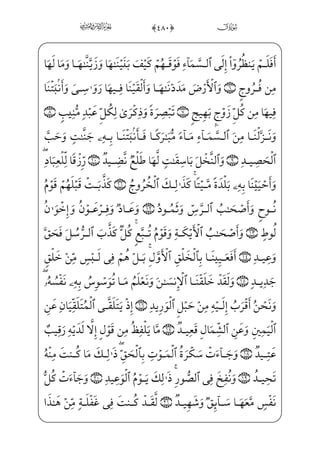 سورة ق ﴿٤٨٠﴾ الجزء السادس والعشرون
أَفَلَمْ يَنظُرُوٓا۟ إِلَى ٱلسَّمَآءِ فَوْقَهُمْ كَيْفَ بَنَيْنَٰهَا وَزَيَّنَّٰهَا وَمَا لَهَا
مِن فُرُوجٍ ۝٦ وَٱلْأَرْضَ مَدَدْنَٰهَا وَأَلْقَيْنَا فِيهَا رَوَٰسِىَ وَأَنۢبَتْنَا
فِيهَا مِن كُلِّ زَوْجٍۭ بَهِيجٍ ۝٧ تَبْصِرَةً وَذِكْرَىٰ لِكُلِّ عَبْدٍ مُّنِيبٍ ۝٨
وَنَزَّلْنَا مِنَ ٱلسَّمَآءِ مَآءً مُّبَٰرَكًا فَأَنۢبَتْنَا بِهِۦ جَنَّٰتٍ وَحَبَّ
ٱلْحَصِيدِ ۝٩ وَٱلنَّخْلَ بَاسِقَٰتٍ لَّهَا طَلْعٌ نَّضِيدٌ ۝١٠ رِّزْقًا لِّلْعِبَادِ
وَأَحْيَيْنَا بِهِۦ بَلْدَةً مَّيْتًا كَذَٰلِكَ ٱلْخُرُوجُ ۝١١ كَذَّبَتْ قَبْلَهُمْ قَوْمُ
نُوحٍ وَأَصْحَٰبُ ٱلرَّسِّ وَثَمُودُ ۝١٢ وَعَادٌ وَفِرْعَوْنُ وَإِخْوَٰنُ
لُوطٍ ۝١٣ وَأَصْحَٰبُ ٱلْأَيْكَةِ وَقَوْمُ تُبَّعٍ كُلٌّ كَذَّبَ ٱلرُّسُلَ فَحَقَّ
وَعِيدِ ۝١٤ أَفَعَيِينَا بِٱلْخَلْقِ ٱلْأَوَّلِ بَلْ هُمْ فِى لَبْسٍ مِّنْ خَلْقٍ
جَدِيدٍ ۝١٥ وَلَقَدْ خَلَقْنَا ٱلْإِنسَٰنَ وَنَعْلَمُ مَا تُوَسْوِسُ بِهِۦ نَفْسُهُۥ
وَنَحْنُ أَقْرَبُ إِلَيْهِ مِنْ حَبْلِ ٱلْوَرِيدِ ۝١٦ إِذْ يَتَلَقَّى ٱلْمُتَلَقِّيَانِ عَنِ
ٱلْيَمِينِ وَعَنِ ٱلشِّمَالِ قَعِيدٌ ۝١٧ مَّا يَلْفِظُ مِن قَوْلٍ إِلَّا لَدَيْهِ رَقِيبٌ
عَتِيدٌ ۝١٨ وَجَآءَتْ سَكْرَةُ ٱلْمَوْتِ بِٱلْحَقِّ ذَٰلِكَ مَا كُنتَ مِنْهُ
تَحِيدُ ۝١٩ وَنُفِخَ فِى ٱلصُّورِ ذَٰلِكَ يَوْمُ ٱلْوَعِيدِ ۝٢٠ وَجَآءَتْ كُلُّ
نَفْسٍ مَّعَهَا سَآئِقٌ وَشَهِيدٌ ۝٢١ لَّقَدْ كُنتَ فِى غَفْلَةٍ مِّنْ هَٰذَا